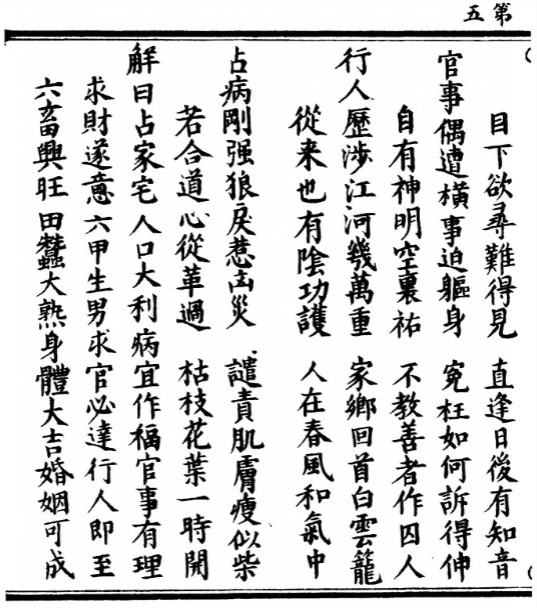 第五
目下欲尋難得見　直逢日後有知音
官事偶遭橫事迫軀身　冤枉如何訴得伸
自有神明空裏祐　不教善者作囚人
行人歷涉江河幾萬重　家鄉回首白雲籠
從来也有陰功護　人在春風和氣中
占病剛强狼戾惹凶災　譴責肌膚瘦似柴
若合道心從革過　枯枝花葉一時開
解曰占家宅人口大利病宜作福官事有理
求財遂意六甲生男求官必達行人即至
六畜興旺田蠶大熟身體大吉婚姻可成